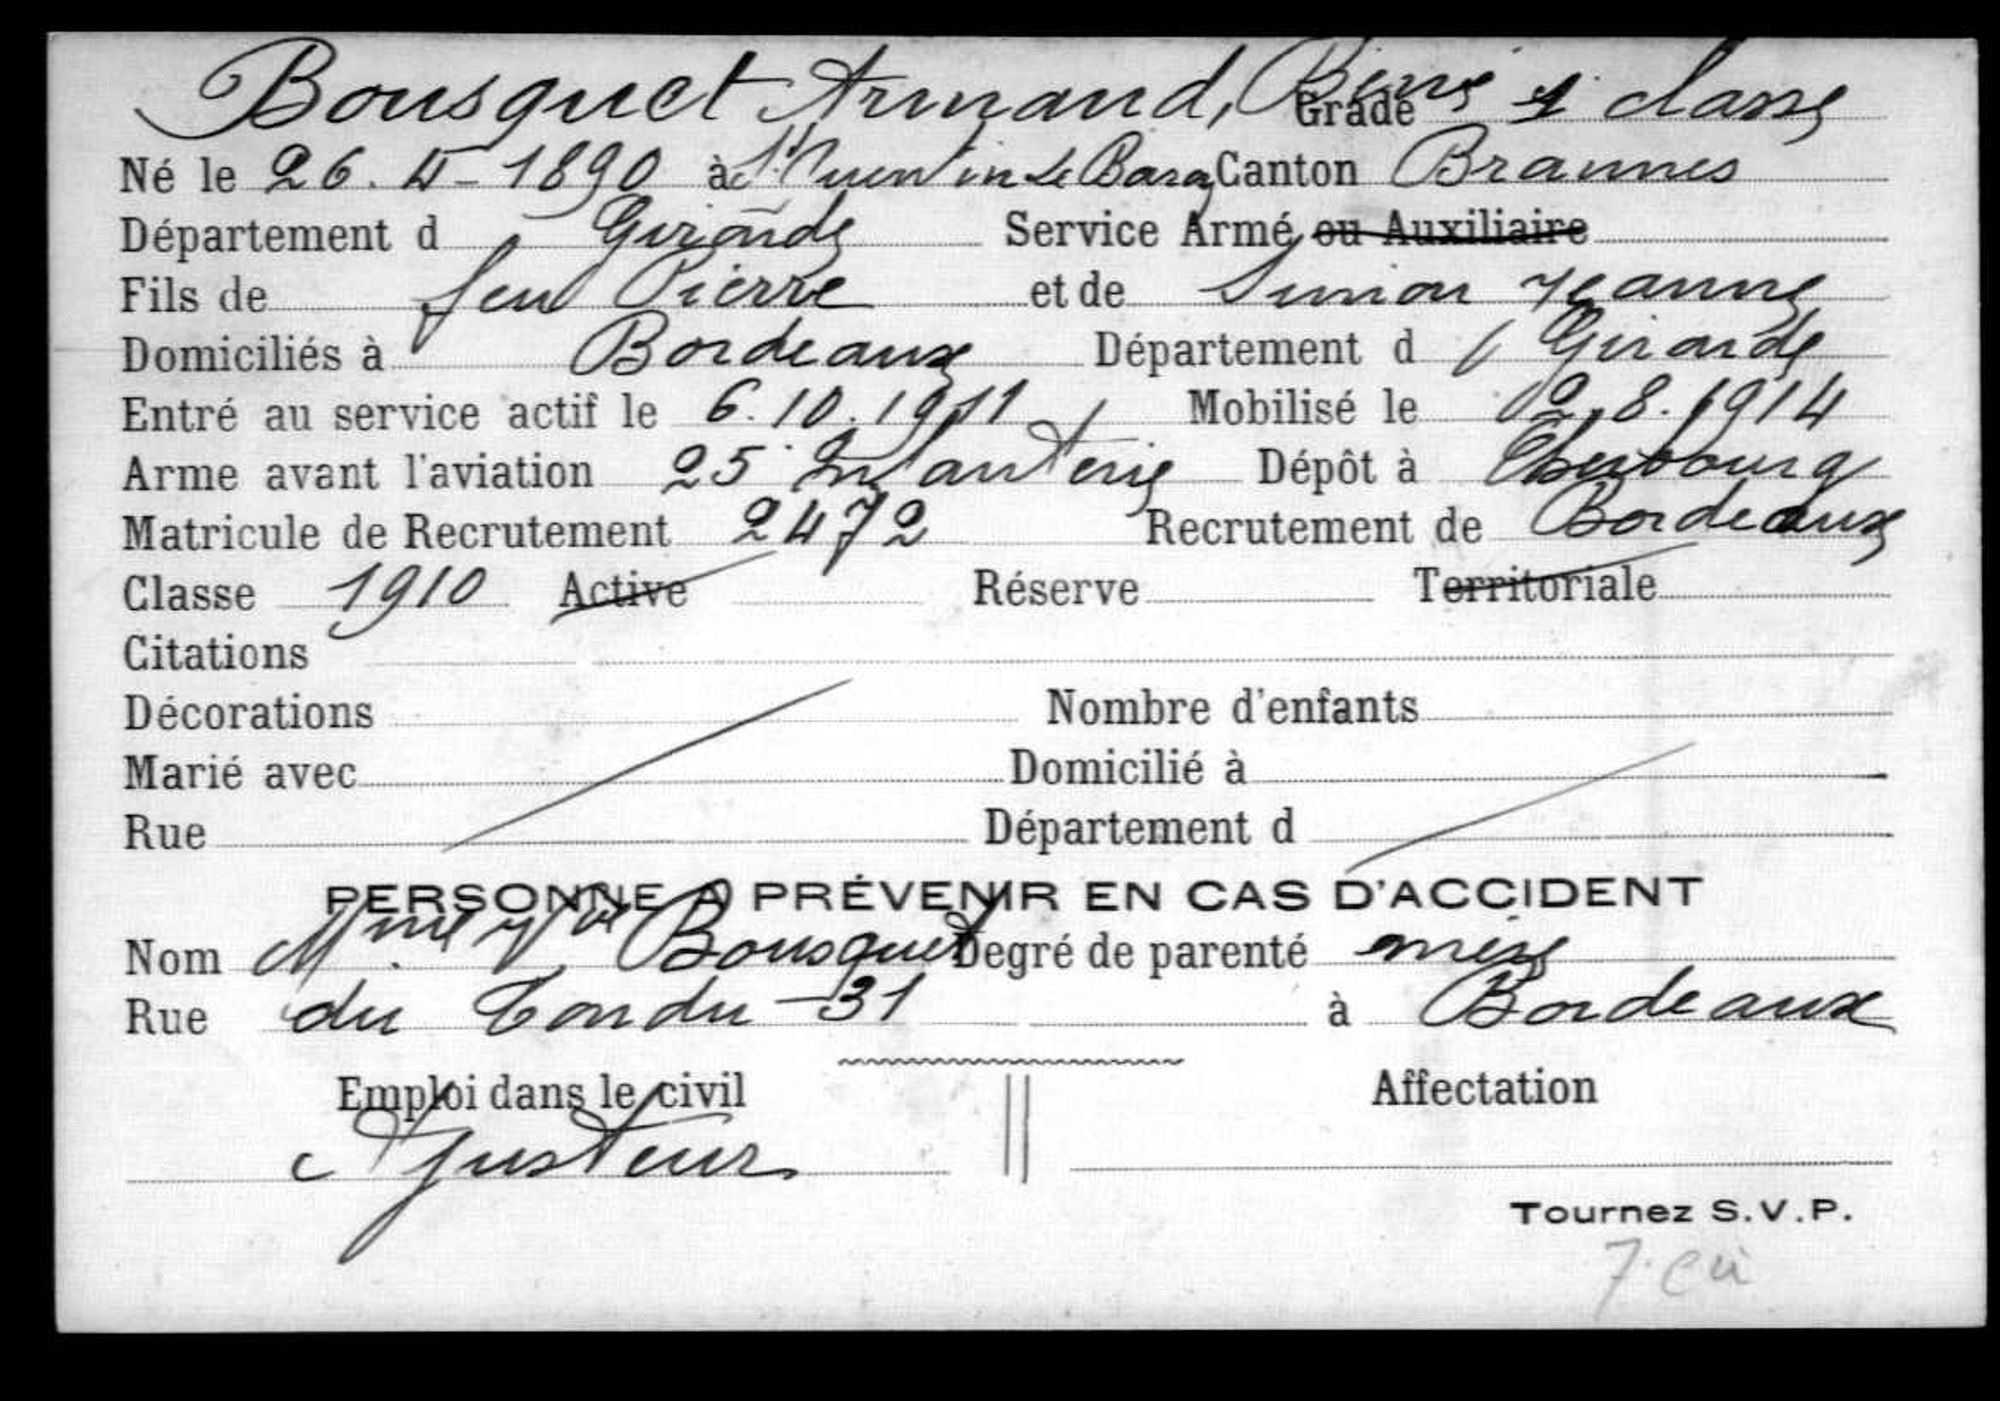 Bousquet Armand, Grade 2 classe
Né le 26. 4 - 1890 à St Quentin de Baron Canton Brannes
Département d Gironde Service Armé ou Auxiliaire
Fils de feu Pierre et de Simon Jeanne
Domiciliés à Bordeaux Département d Gironde
Entré au service actif le 6.10.1911 Mobilisé le 2.8.1914
Arme avant l'aviation 25 Infanterie Dépôt à Cherbourg
Matricule de Recrutement 2472 Recrutement de Bordeaux
Classe 1910 Active Réserve Territoriale
Citations
Décorations Nombre d'enfants
Marié avec Domicilié à
Rue Département d
PERSONNE A PRÉVENIR EN CAS D'ACCIDENT
Nom Mme Vve Bousquet Degré de parenté mère
Rue du Tondu - 31 à Bordeaux
Emploi dans le civil Affectation
Ajusteur
Tournez S.V.P.